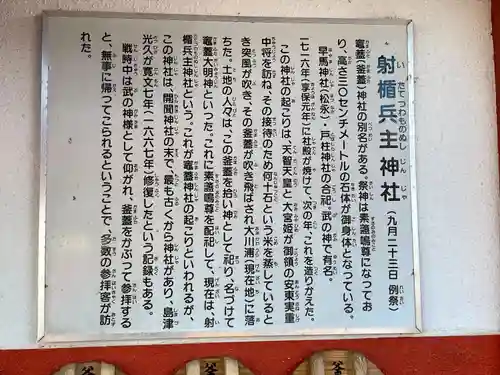 射楯兵主神社（九月二十三日 例祭）
いたてつわものぬしじんじゃ
竈蓋（釜蓋）神社の別名がある。祭神は素蓋鳴尊になってお
り、高さ三〇センチメートルの石体が御身体となっている。
早馬神社（松永）、戸柱神社の合祀。武の神で有名。
一七一六年（享保元年）に社殿が焼けて、次の年、これを造りかえた。
この神社の起こりは、「天智天皇と大宮姫が御領の安東実重
中将を訪ね、その接待のため何十石という米を蒸していると
き突風が吹き、その釜蓋が吹き飛ばされ大川浦（現在地）に落
ちた。土地の人々は、この釜蓋を拾い神として祀り、名づけて
竈蓋大明神といった。これに素蓋鳴尊を配祀して、現在は、射
楯兵主神社という。」これが竈蓋神社の起こりといわれるが、
この神社は、開聞神社の末で、最も古くから神社があり、島津
光久が寛文七年（一六六七年）修復したという記録もある。
戦時中は武の神様として仰がれ、釜蓋をかぶって参拝する
と、無事に帰ってこられるということで、多数の参拝客が訪
れた。
釜
釜
釜